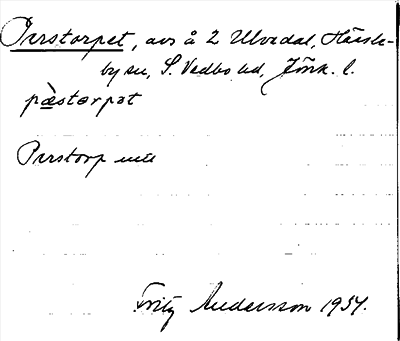 Perstorpet, avs å 2 Ulvedal, Hässle-
by sn, S. Vedbo hd, Jönk. l.
pæ̀storpət
Perstorp
Fritz Andersson 1934.